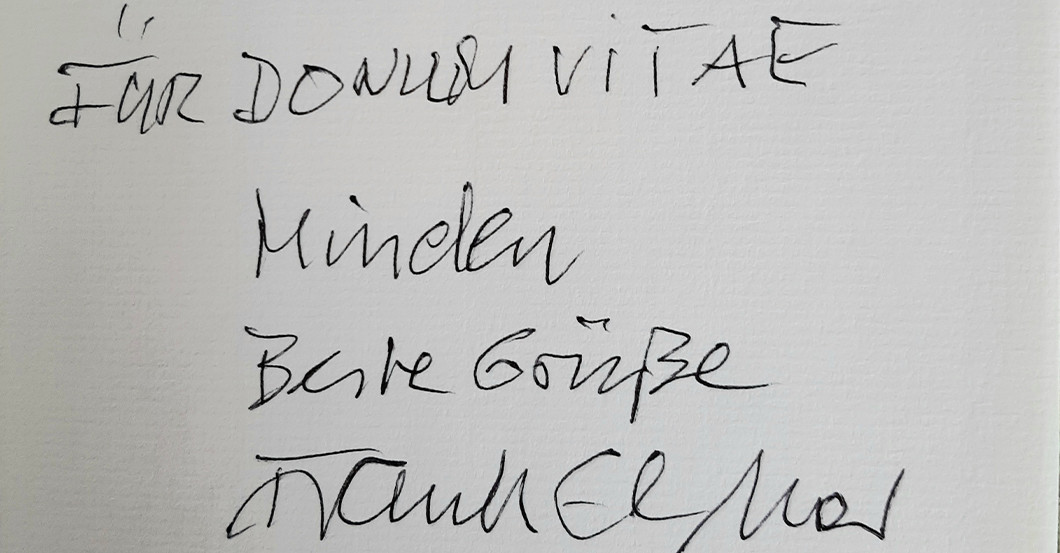 FÜR DONUM VITAE
Minden
Beste Grüße
Frank